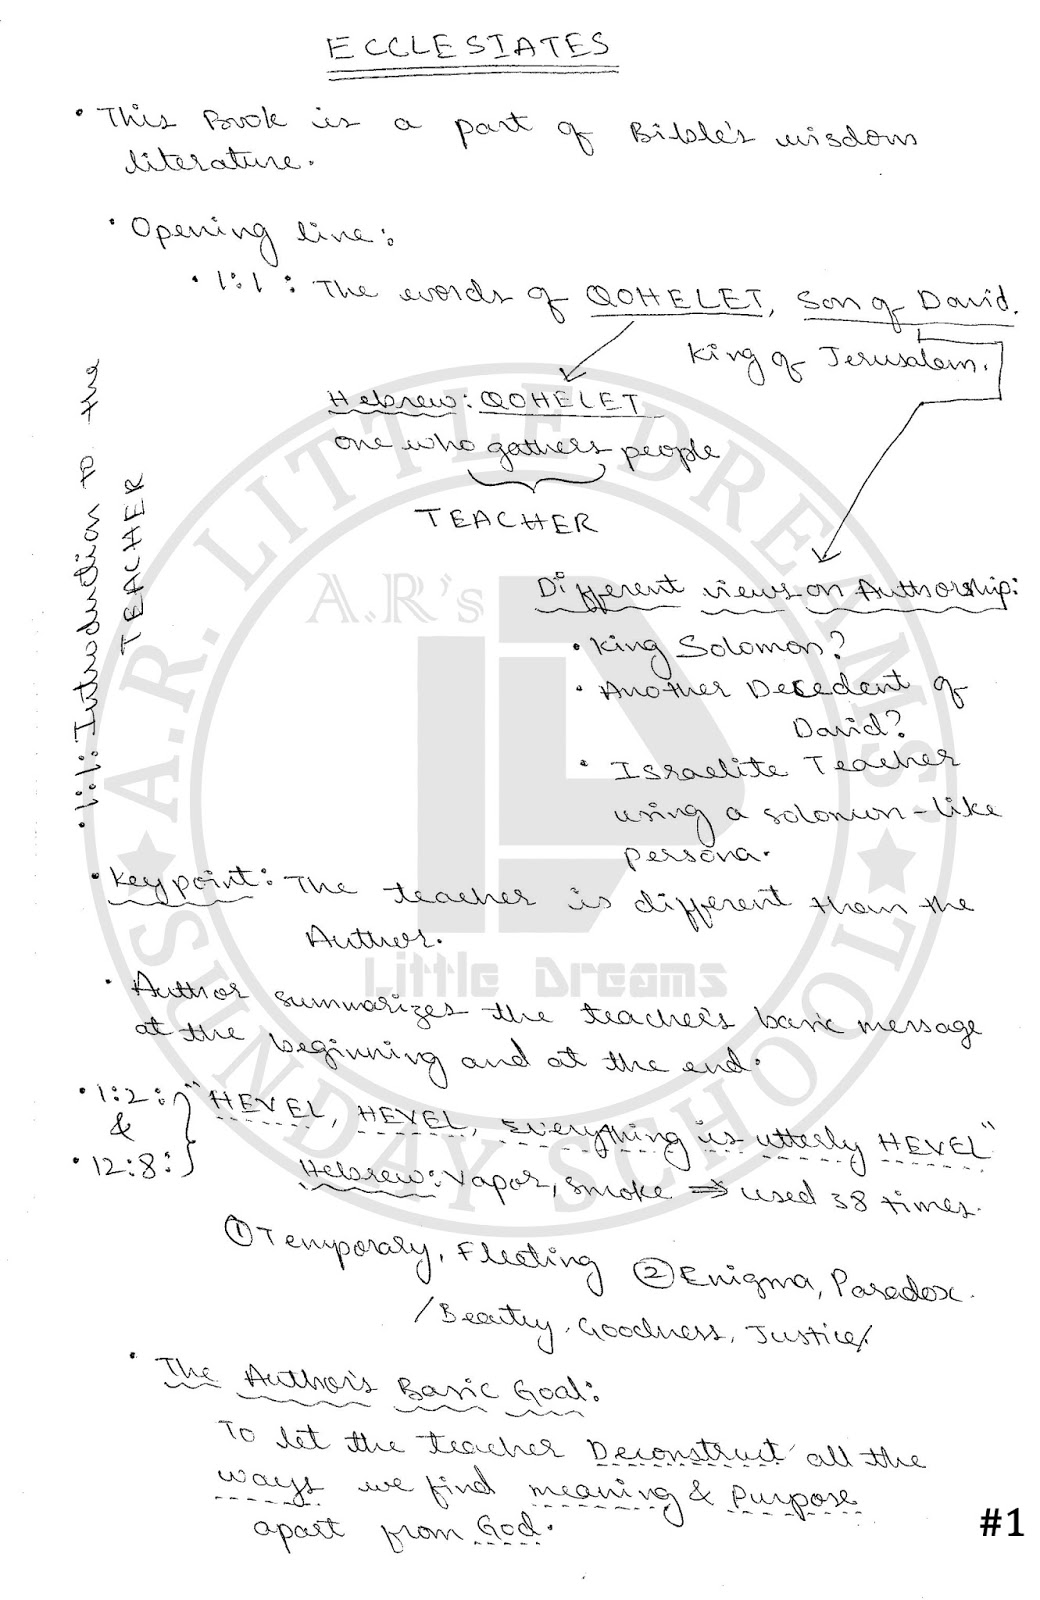 ECCLESIATES
• This Book is a part of Bible's wisdom
literature.
• Opening line:
• 1:1: The words of QOHELET, Son of David,
King of Jerusalem.
Hebrew: QOHELET
one who gathers people
TEACHER
• 1:1: Introduction to the
TEACHER
Different views on Authorship:
• King Solomon?
• Another Decedent of
David?
• Israelite Teacher
using a solomon-like
persona.
• Key point: The teacher is different than the
Author.
• Author summarizes the teacher's basic message
at the beginning and at the end.
• 1:2:
&
• 12:8:
"HEVEL, HEVEL, everything is utterly HEVEL"
Hebrew: Vapor, smoke ⇒ used 38 times.
① Temporary, Fleeting ② Enigma, Paradox.
/Beauty, Goodness, Justice/
• The Author's Basic Goal:
To let the teacher Deconstruct all the
ways we find meaning & Purpose
apart from God.
#1
A.R. LITTLE DREAMS'
★ SUNDAY SCHOOL ★
A.R's
LD
Little Dreams